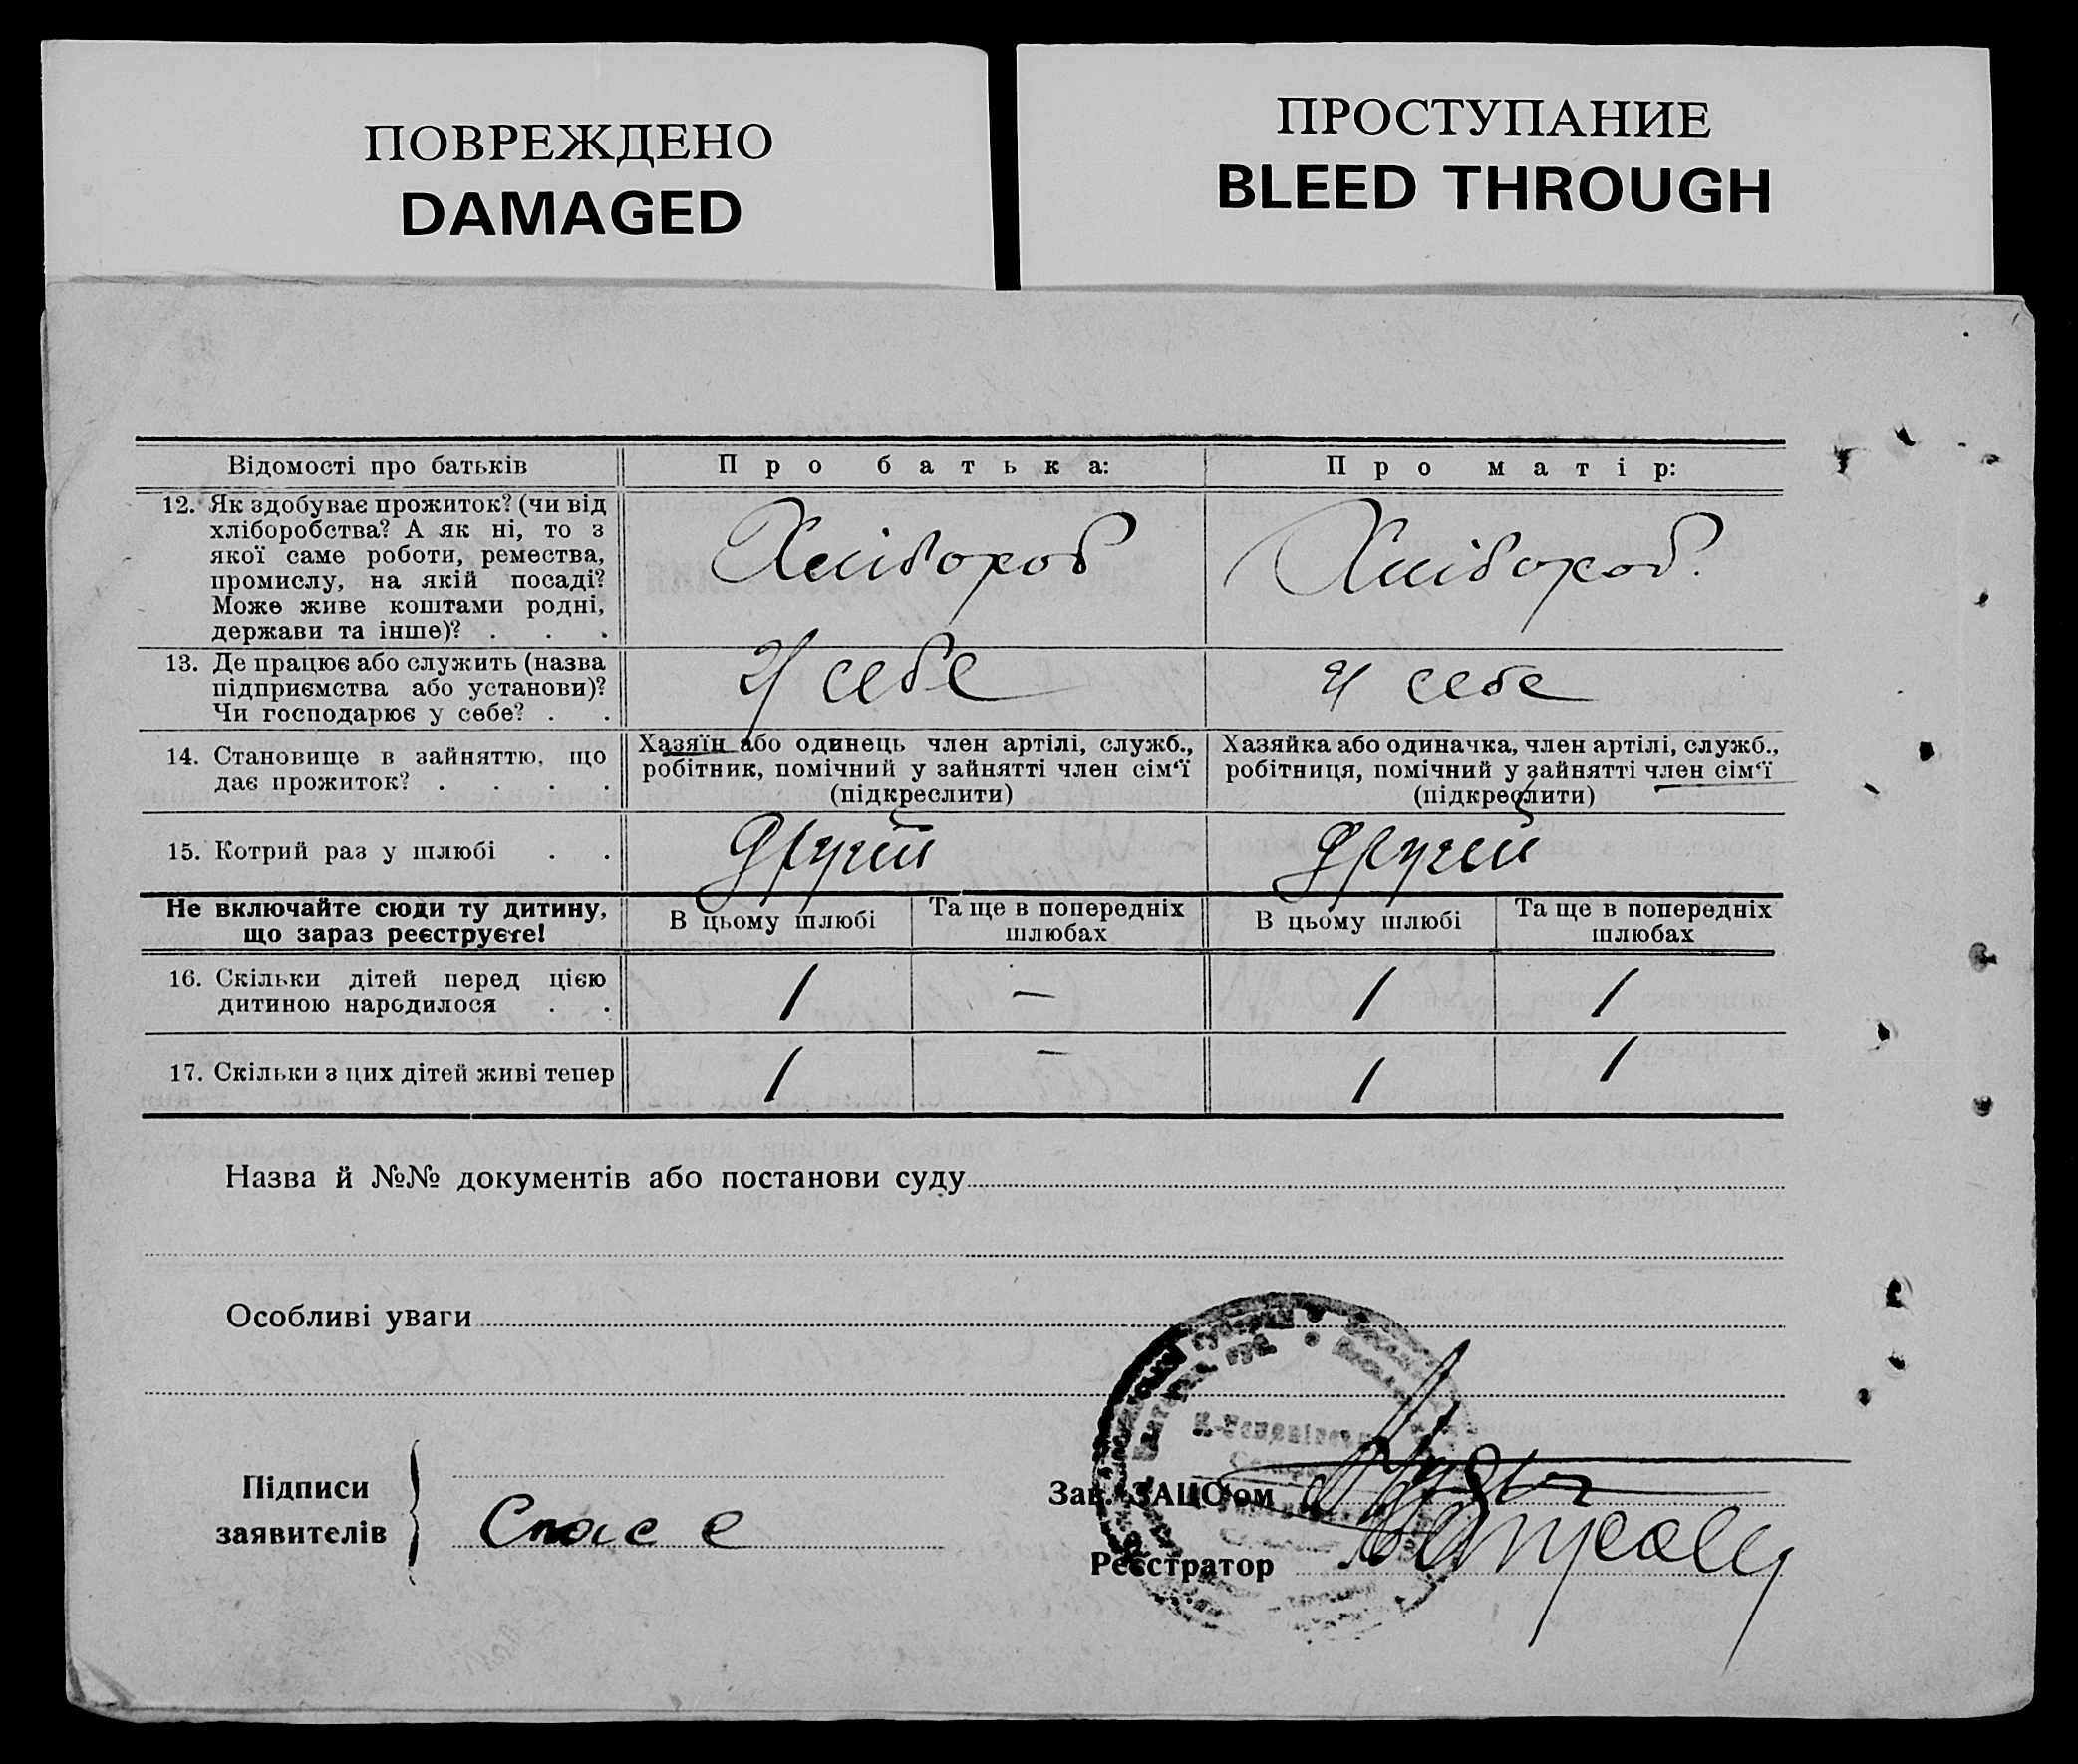 ПОВРЕЖДЕНО
DAMAGED
ПРОСТУПАНИЕ
BLEED THROUGH
Відомості про батьків
Про батька:
Про матір:
12. Як здобуває прожиток? (чи від
хліборобства? А як ні, то з
якої саме роботи, ремества,
промислу, на якій посаді?
Може живе коштами родні,
держави та інше)? . . .
Хлібороб
Хлібороб.
13. Де працює або служить (назва
підприємства або установи)?
Чи господарює у себе? . .
У себе
У себе
14. Становище в зайняттю, що
дає прожиток? . . . .
Хазяїн або одинець член артілі, служб.,
робітник, помічний у зайнятті член сім‘ї
(підкреслити)
Хазяйка або одиначка, член артілі, служб.,
робітниця, помічний у зайнятті член сім‘ї
(підкреслити)
15. Котрий раз у шлюбі . .
Другий
Другий
Не включайте сюди ту дитину,
що зараз реєструєте!
В цьому шлюбі
Та ще в попередніх
шлюбах
В цьому шлюбі
Та ще в попередніх
шлюбах
16. Скільки дітей перед цією
дитиною народилося . .
1
—
1
1
17. Скільки з цих дітей живі тепер
1
—
1
1
Назва й №№ документів або постанови суду
Особливі уваги
Підписи
заявителів
Спасе
Зав. ЗАЦС'ом
Реєстратор